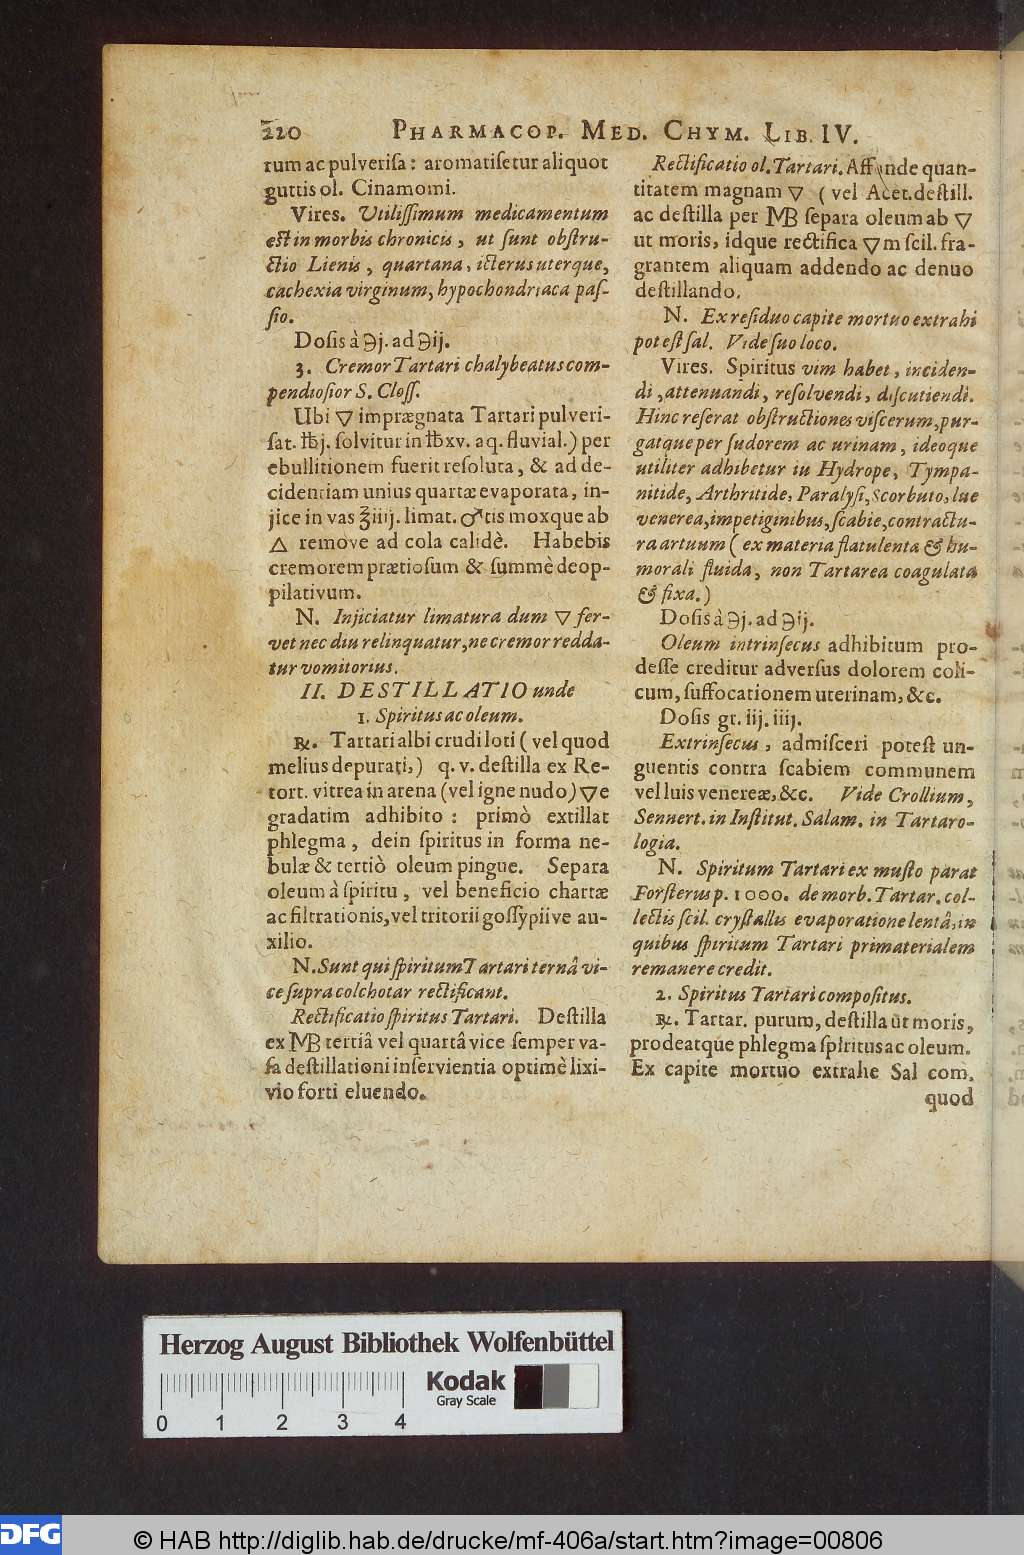 220 PHARMACOP. MED. CHYM. LIB. IV.
rum ac pulverisa: aromatisetur aliquot
guttis ol. Cinamomi.
Vires. Utilissimum medicamentum
est in morbis chronicis, ut sunt obstru-
ctio Lienis, quartana, icterus uterque,
cachexia virginum, hypochondriaca pas-
sio.
Dosis à ℈j. ad ℈ij.
3. Cremor Tartari chalybeatus com-
pendiosior S. Closs.
Ubi 🜄 imprægnata Tartari pulveri-
sat. ℔j. solvitur in ℔xv. aq. fluvial.) per
ebullitionem fuerit resoluta, & ad de-
cidentiam unius quartæ evaporata, in-
jice in vas ℥iiij. limat. ♂tis moxque ab
🜂 remove ad cola calidè. Habebis
cremorem prætiosum & summè deop-
pilativum.
N. Injiciatur limatura dum 🜄 fer-
vet nec diu relinquatur, ne cremor redda-
tur vomitorius.
II. DESTILLATIO unde
1. Spiritus ac oleum.
℞. Tartari albi crudi loti (vel quod
melius depurati,) q. v. destilla ex Re-
tort. vitrea in arena (vel igne nudo) 🜄e
gradatim adhibito: primò extillat
phlegma, dein spiritus in forma ne-
bulæ & tertiò oleum pingue. Separa
oleum à spiritu, vel beneficio chartæ
ac filtrationis, vel tritorii gossypiive au-
xilio.
N. Sunt qui spiritum Tartari ternâ vi-
ce supra colchotar rectificant.
Rectificatio spiritus Tartari. Destilla
ex MB tertiâ vel quartâ vice semper va-
sa destillationi inservientia optimè lixi-
vio forti eluendo.
Rectificatio ol. Tartari. Affunde quan-
titatem magnam 🜄 (vel Acet. destill.
ac destilla per MB separa oleum ab 🜄
ut moris, idque rectifica 🜄m scil. fra-
grantem aliquam addendo ac denuo
destillando.
N. Ex residuo capite mortuo extrahi
potest sal. Vide suo loco.
Vires. Spiritus vim habet, inciden-
di, attenuandi, resolvendi, discutiendi.
Hinc reserat obstructiones viscerum, pur-
gatque per sudorem ac urinam, ideoque
utiliter adhibetur iu Hydrope, Tympa-
nitide, Arthritide, Paralysi, Scorbuto, lue
venerea, impetiginibus, scabie, contractu-
ra artuum (ex materia flatulenta & hu-
morali fluida, non Tartarea coagulata
& fixa.)
Dosis à ℈j. ad ℈ij.
Oleum intrinsecus adhibitum pro-
desse creditur adversus dolorem coli-
cum, suffocationem uterinam, &c.
Dosis gt. iij. iiij.
Extrinsecus, admisceri potest un-
guentis contra scabiem communem
vel luis venereæ, &c. Vide Crollium,
Sennert. in Institut. Salam. in Tartaro-
logia.
N. Spiritum Tartari ex musto parat
Forsterus p. 1000. de morb. Tartar. col-
lectis scil. crystallis evaporatione lentâ, in
quibus spiritum Tartari primaterialem
remanere credit.
2. Spiritus Tartari compositus.
℞. Tartar. purum, destilla ut moris,
prodeatque phlegma spiritus ac oleum.
Ex capite mortuo extrahe Sal com.
quod
Herzog August Bibliothek Wolfenbüttel
Kodak
Gray Scale
0 1 2 3 4
DFG
© HAB http://diglib.hab.de/drucke/mf-406a/start.htm?image=00806